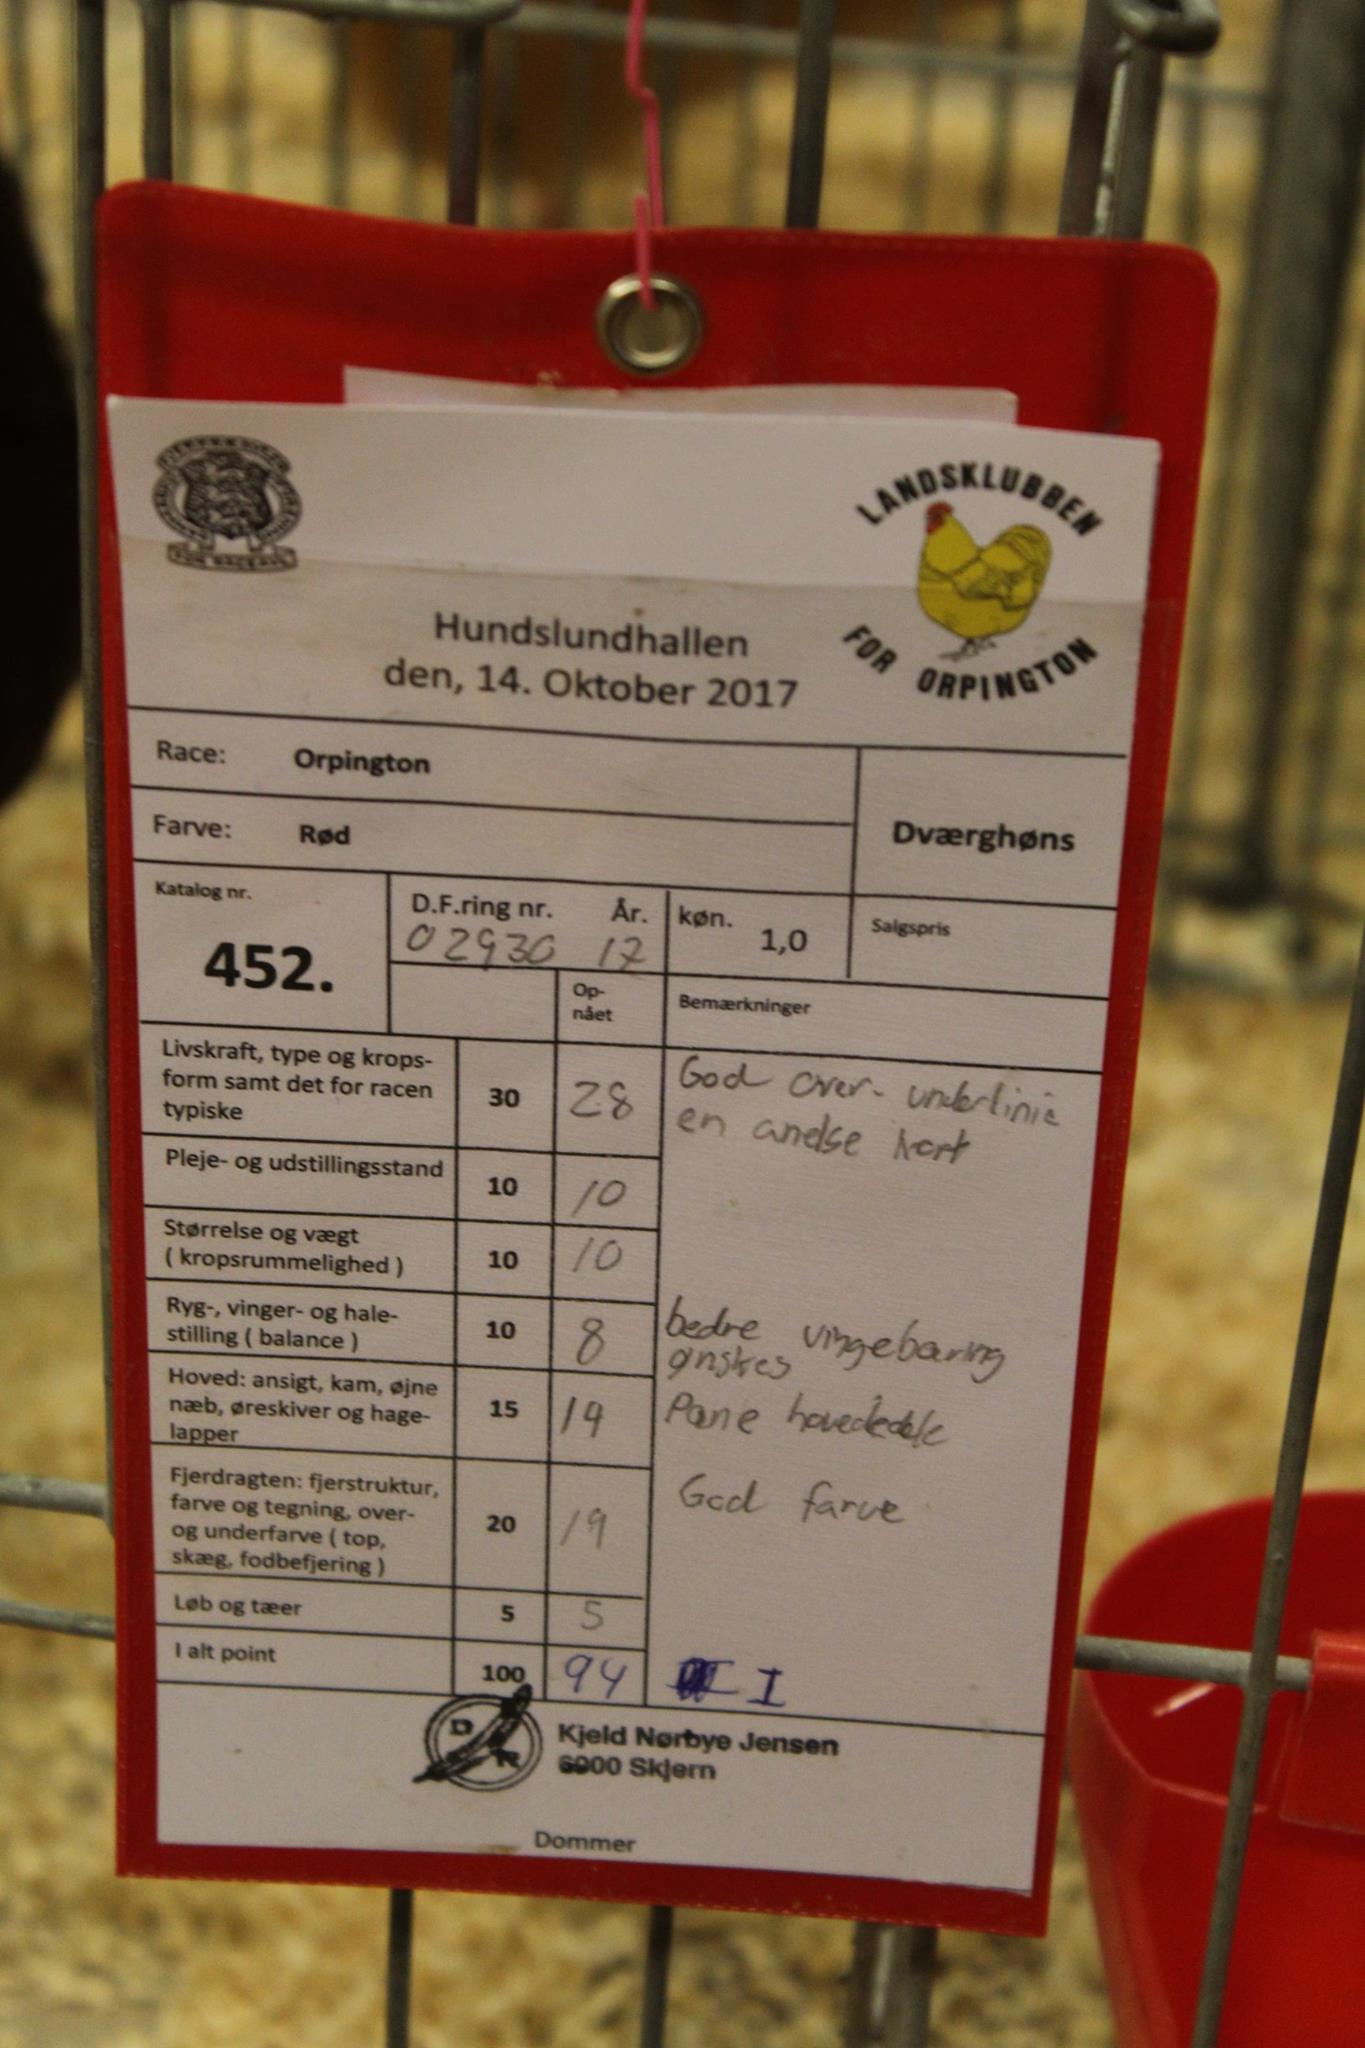 LANDSKLUBBEN
FOR ORPINGTON
Hundslundhallen
den, 14. Oktober 2017
Race: Orpington
Dværghøns
Farve: Rød
Katalog nr.
452.
D.F.ring nr. År.
02930 17
køn. 1,0
Salgspris
Op-
nået
Bemærkninger
Livskraft, type og krops-
form samt det for racen
typiske
30
28
God over- underlinie
en anelse kort
Pleje- og udstillingsstand
10
10
Størrelse og vægt
( kropsrummelighed )
10
10
Ryg-, vinger- og hale-
stilling ( balance )
10
8
bedre vingebæring
ønskes
Hoved: ansigt, kam, øjne
næb, øreskiver og hage-
lapper
15
14
Pæne hoveddele
Fjerdragten: fjerstruktur,
farve og tegning, over-
og underfarve ( top,
skæg, fodbefjering )
20
19
God farve
Løb og tæer
5
5
I alt point
100
94
I
D
R
Kjeld Nørbye Jensen
6900 Skjern
Dommer